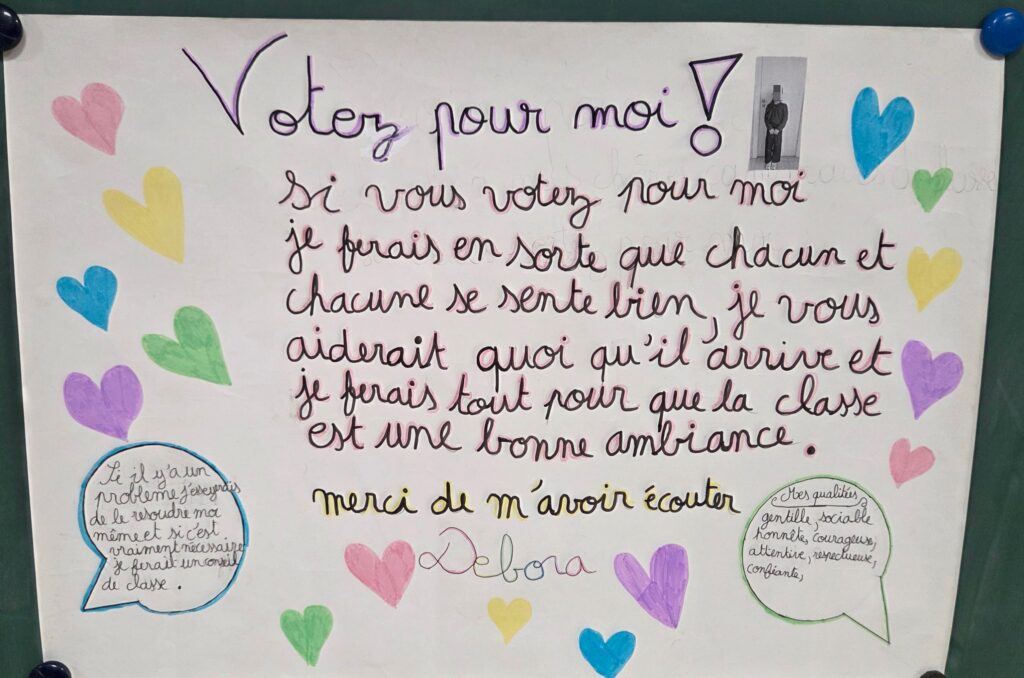 Votez pour moi !
Si vous votez pour moi
je ferais en sorte que chacun et
chacune se sente bien, je vous
aiderait quoi qu'il arrive et
je ferais tout pour que la classe
est une bonne ambiance.
merci de m'avoir écouter
Debora
Si il y'a un
problème j'ésseyerais
de le resoudre moi
même et si c'est
vraiment nécessaire
je ferait un conseil
de classe.
Mes qualités
gentille, sociable
honnête, courageuse,
attentive, respectueuse,
confiante,